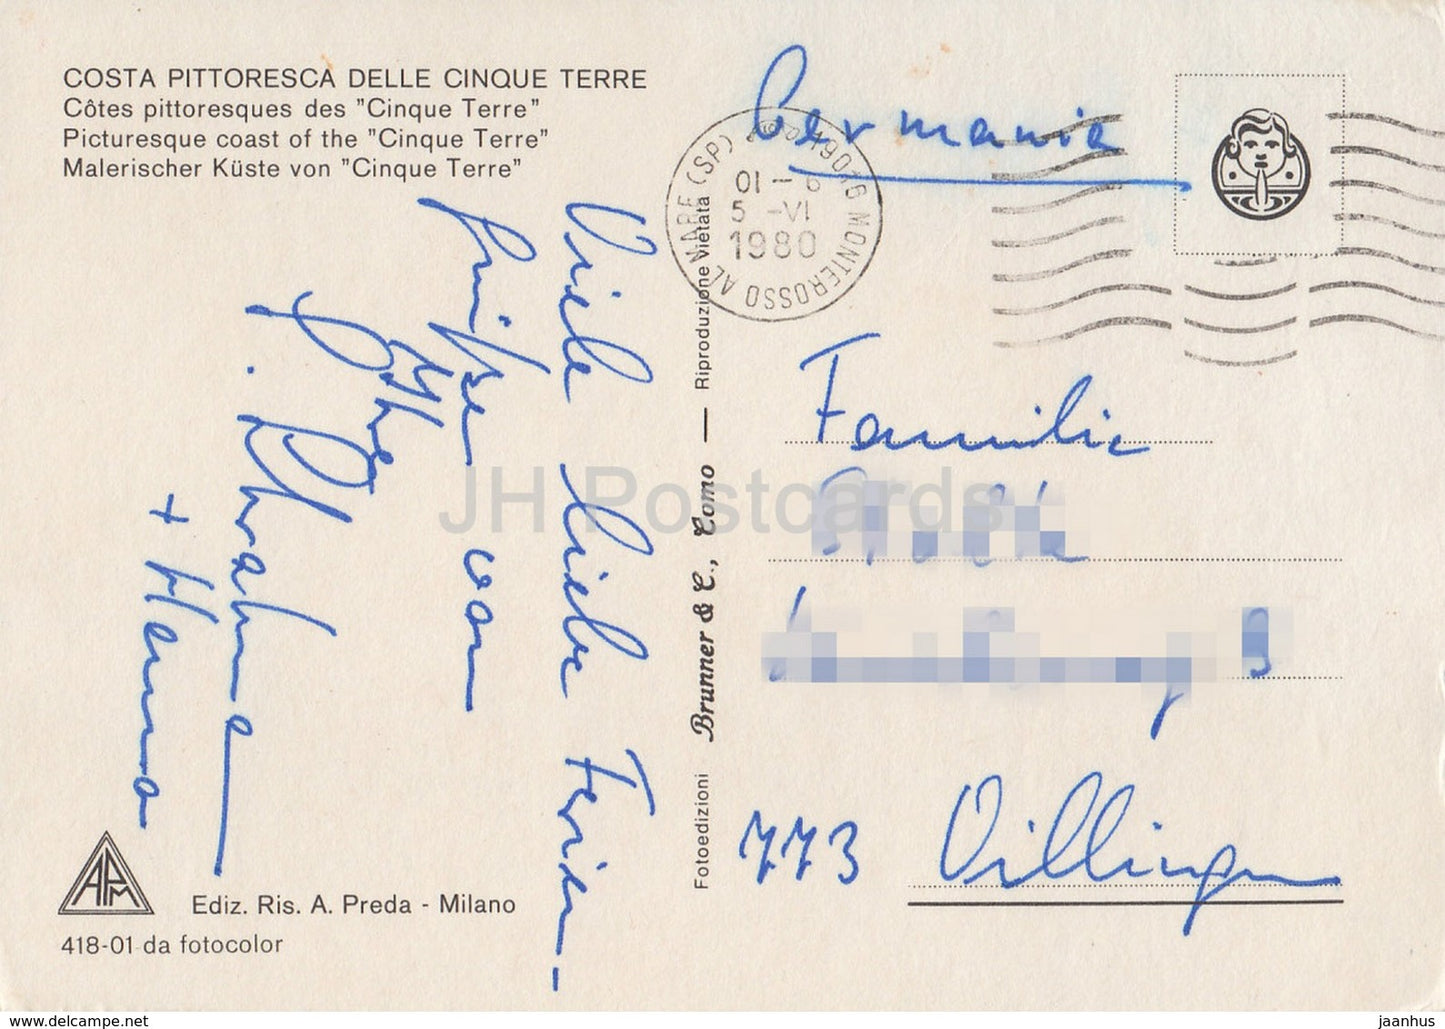 COSTA PITTORESCA DELLE CINQUE TERRE
Côtes pittoresques des "Cinque Terre"
Picturesque coast of the "Cinque Terre"
Malerischer Küste von "Cinque Terre"
Germania
19016 MONTEROSSO AL MARE (SP)
01 - 6
5 -VI
1980
Viele liebe Ferien-
grüße von
+ Hanno
Familie
3
773 Villingen
Fotoedizioni Brunner & C., Como — Riproduzione vietata
APM
Ediz. Ris. A. Preda - Milano
418-01 da fotocolor
JH Postcards
www.delcampe.net
jaanhus